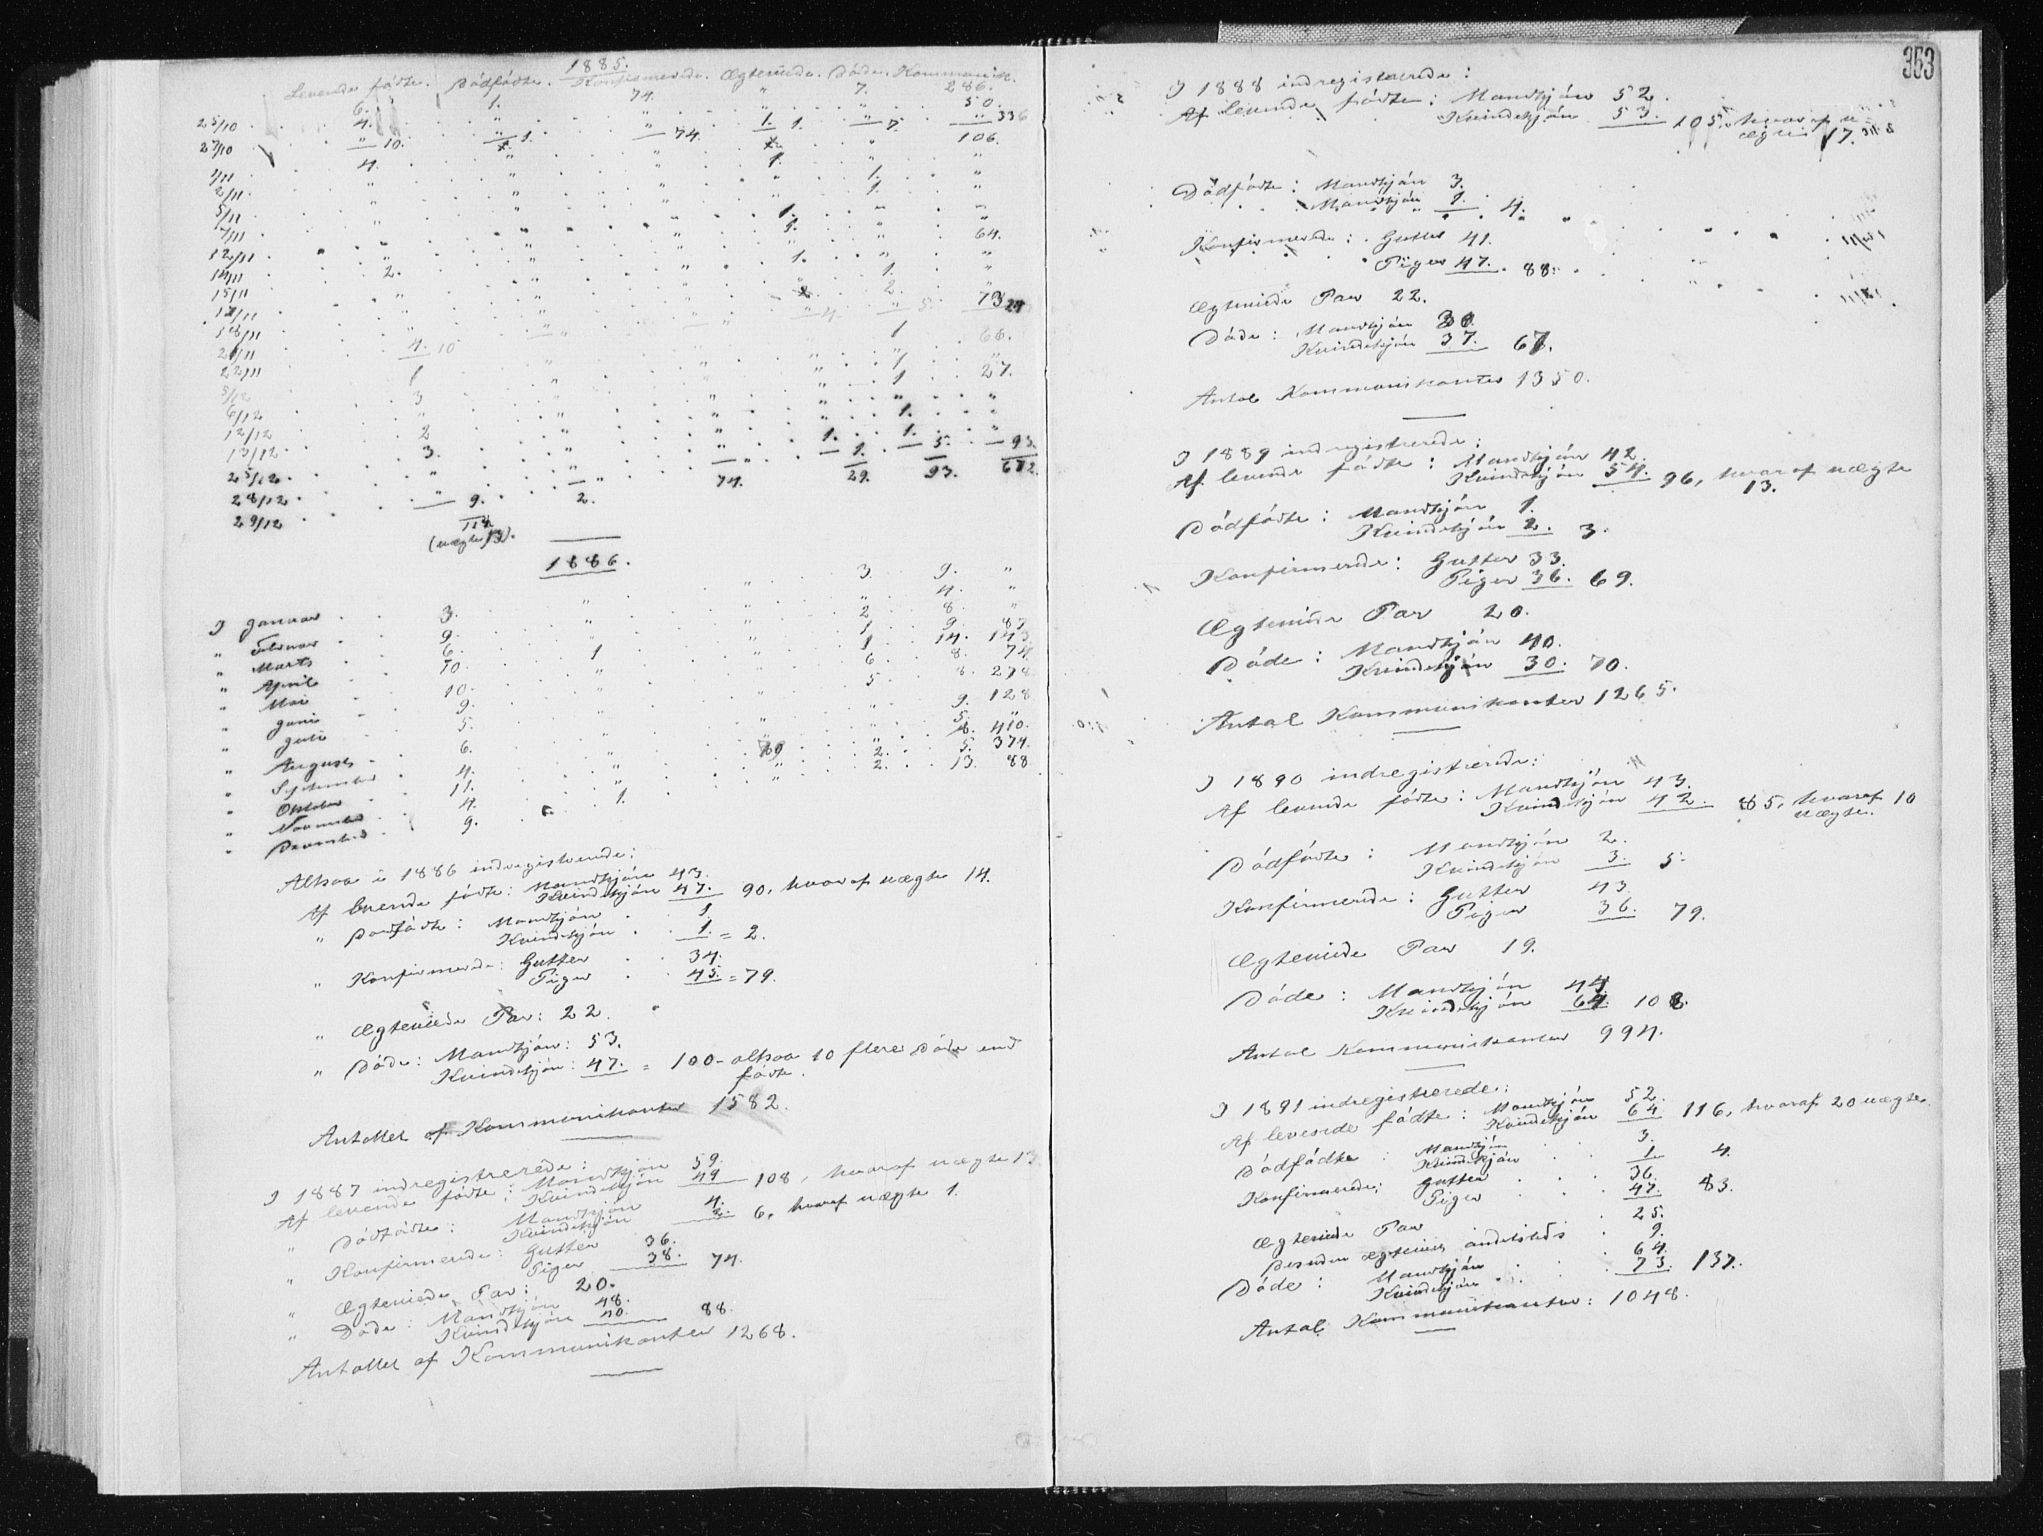 1885.
Levende fødte. Dødfødte. Konfirmerede. Ægteviede. Døde. Kommunik.
6. 1. 74. " 7. 286.
25/10 4. " " " " 50.
27/10 " 10. " 1. " 74. 1. 1. " 7. " 336
1/11 4. " 106.
2/11 " " " 1. "
5/11 " " " 1. "
7/11 " " " 1. " "
12/11 " " " 1. " 64.
14/11 2. " " 1. "
15/11 " " " 2. "
28/11 73
21/11 4. 10 " 1 66.
22/11 1 " " " 1 27.
5/12 3 " " " 1
6/12 " " " " "
12/12 2 " " 1.
13/12 3. " " 1. 1.
25/12 " " " 1. 5. 93.
28/12 " 9. 2. 74. 29. 93. 672.
29/12 114
(uægte 13).
1886.
I Januar 3. " " 3. 9. "
" Februar 9. " " " 4. "
" Marts 6. " " 2 8. "
" April 10. 1 " 1 9. 87
" Mai 10. " " 1 14. 143
" Juni 9. " " 6. 8. 74
" Juli 5. " " 5. 8. 278
" August 6. " " " 9. 128
" September 4. " " " 5. "
" Oktober 11. " 79 " 6. 410.
" November 4. " " 2. 5. 374.
" December 9. 1. " 2. 13. 88
Altsaa i 1886 indregistrerede:
Af levende fødte: Mandkjøn 43.
Kvindekjøn 47. 90, hvoraf uægte 14.
" Dødfødte: Mandkjøn 1
Kvindekjøn 1. = 2.
" Konfirmerede: Gutter 34.
Piger 45. = 79.
" Ægteviede Par: 22.
" Døde: Mandkjøn: 53.
Kvindekjøn: 47. = 100 - altsaa 10 flere Døde end
fødte.
Antallet af Kommunikanter 1582.
I 1887 indregistrerede:
Af levende fødte: Mandkjøn 59.
Kvindekjøn 49 108, hvoraf uægte 13
" Dødfødte: Mandkjøn 4.
Kvindekjøn 2. 6, hvoraf uægte 1.
" Konfirmerede: Gutter 36.
Piger 38. 74.
" Ægteviede Par: 20.
" Døde: Mandkjøn 48.
Kvindekjøn 40. 88.
Antallet af Kommunikanter 1268.
353
I 1888 indregistrerede:
Af levende fødte: Mandkjøn 52.
Kvindekjøn 53. 105, hvoraf u
ægte 17.
Dødfødte: Mandkjøn 3.
Mandkjøn 1. 4.
Konfirmerede: Gutter 41.
Piger 47. 88.
Ægteviede Par 22.
Døde: Mandkjøn 30.
Kvindekjøn 37. 67.
Antal Kommunikanter 1350.
I 1889 indregistrerede:
Af levende fødte: Mandkjøn 42.
Kvindekjøn 54. 96, hvoraf uægte
13.
Dødfødte: Mandkjøn 1.
Kvindekjøn 2. 3.
Konfirmerede: Gutter 33.
Piger 36. 69.
Ægteviede Par 20.
Døde: Mandkjøn 40.
Kvindekjøn 30. 70.
Antal Kommunikanter 1265.
I 1890 indregistrerede:
Af levende fødte: Mandkjøn 43.
Kvindekjøn 42. 85, hvoraf 10
uægte.
Dødfødte: Mandkjøn 2.
Kvindekjøn 3. 5.
Konfirmerede: Gutter 43.
Piger 36. 79.
Ægteviede Par 19.
Døde: Mandkjøn 44
Kvindekjøn 64. 108.
Antal Kommunikanter 994.
I 1891 indregistrerede:
Af levende fødte: Mandkjøn 52.
Kvindekjøn 64 116, hvoraf 20 uægte.
Dødfødte: Mandkjøn 3.
Kvindekjøn 1. 4.
Konfirmerede: Gutter 36.
Piger 47. 83.
Ægteviede Par 25.
Desuden ægteviet andetsteds 9.
Døde: Mandkjøn 64.
Kvindekjøn 73. 137.
Antal Kommunikanter: 1048.